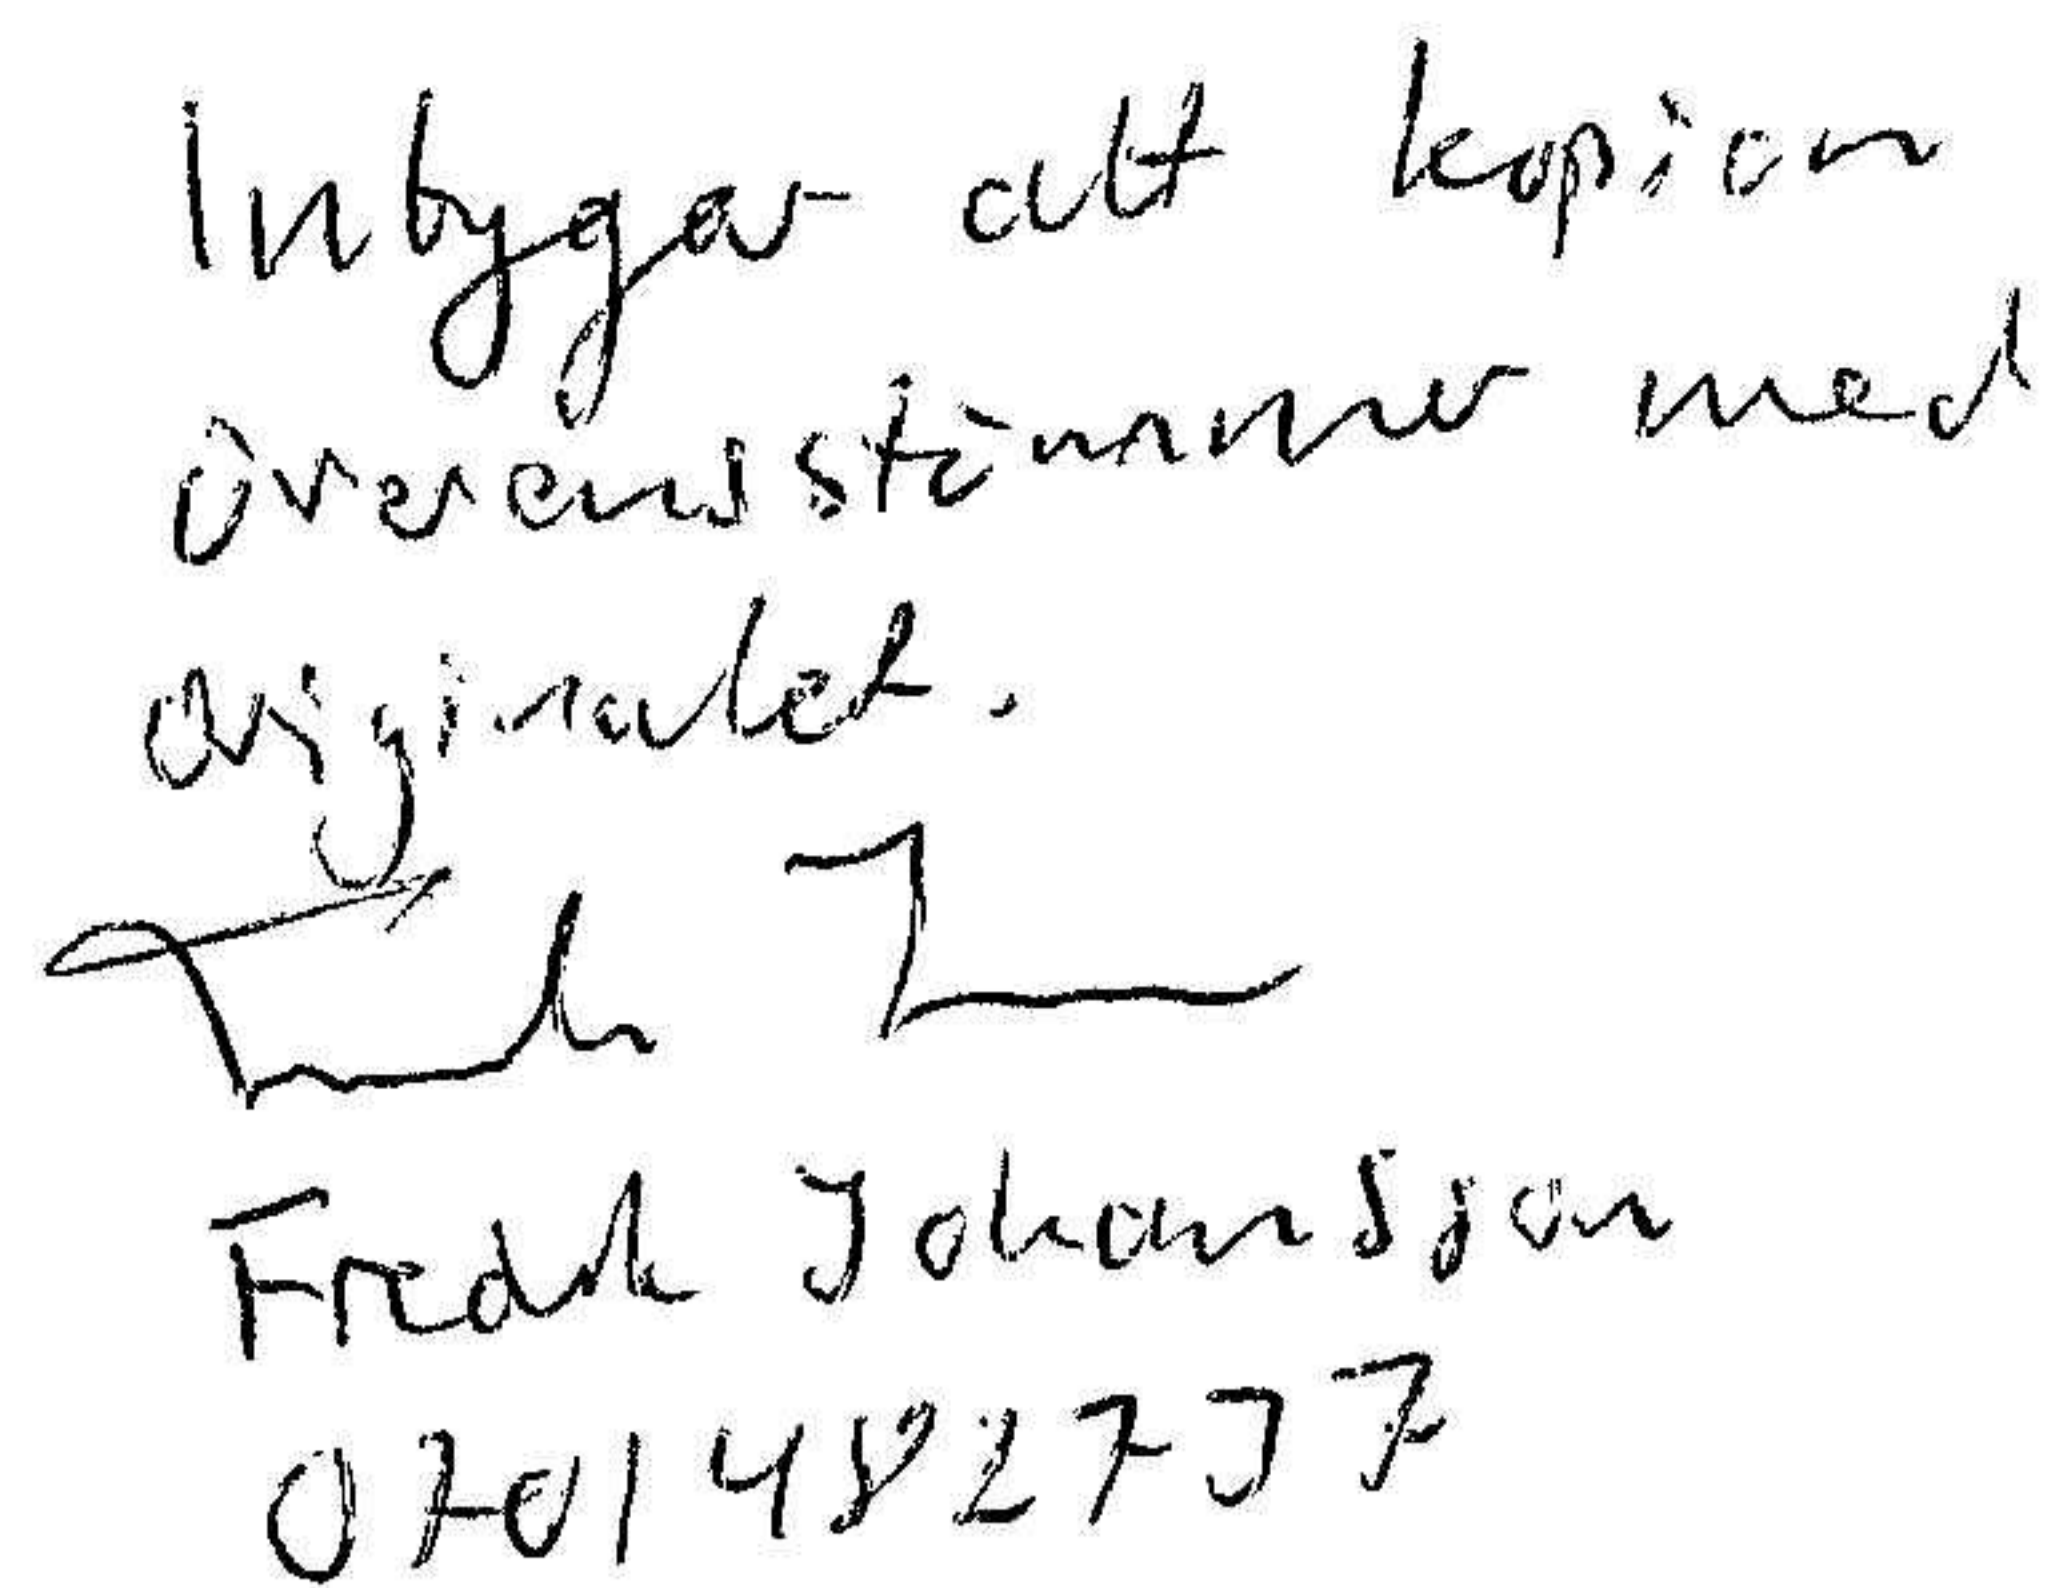 Intygar att kopian
överensstämmer med
originalet.
Fredrik Johansson
0701482737